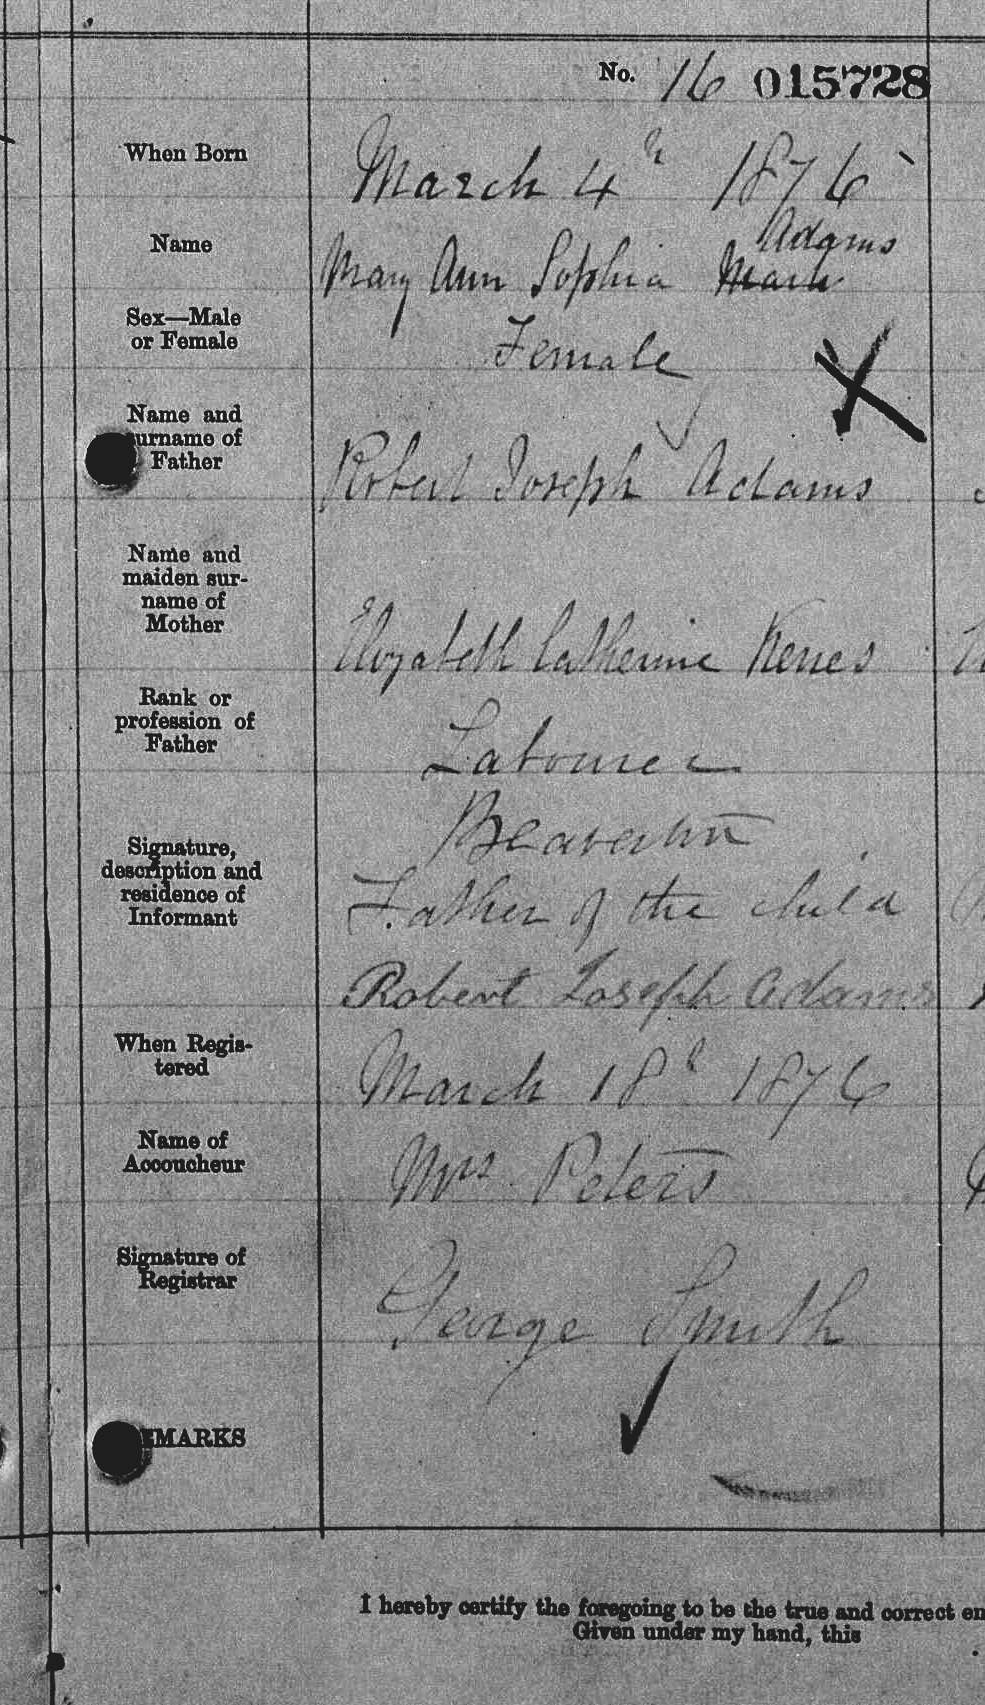 No. 16 015728
When Born
March 4th 1876
Name
Adams
Mary Ann Sophia
Sex—Male
or Female
Female
Name and
surname of
Father
Robert Joseph Adams
Name and
maiden sur-
name of
Mother
Elizabeth Catherine
Rank or
profession of
Father
Labourer
Signature,
description and
residence of
Informant
Beaverton
Father of the child
Robert Joseph Adams
When Regis-
tered
March 18th 1876
Name of
Accoucheur
Mrs Peters
Signature of
Registrar
George Smith
MARKS
I hereby certify the foregoing to be the true and correct en
Given under my hand, this